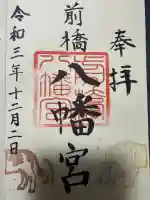 奉拝
前橋
八幡宮
令和三年十二月二日